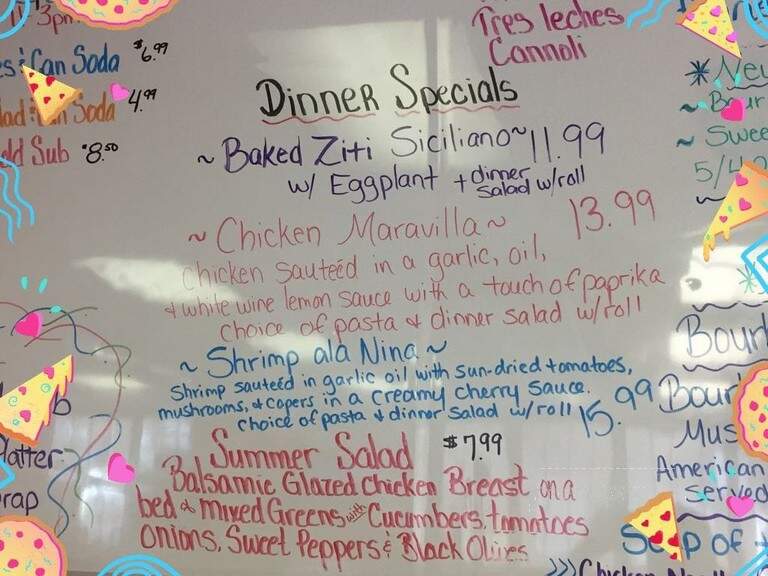 3pm
Tres leches
Cannoli
Can Soda $6.99
Soda 4.99
Sub $8.50
Dinner Specials
~ Baked Ziti Siciliano ~ 11.99
w/ Eggplant + dinner salad w/roll
~ Chicken Maravilla ~ 13.99
chicken sauteéd in a garlic, oil,
& white wine lemon sauce with a touch of paprika
choice of pasta & dinner salad w/roll
~ Shrimp ala Nina ~
Shrimp sauteéd in garlic oil, with sun-dried tomatoes,
mushrooms, & capers in a creamy cherry sauce.
choice of pasta & dinner salad w/roll 15.99
Summer Salad $7.99
Balsamic Glazed Chicken Breast on a
bed of mixed Greens with Cucumbers, tomatoes
onions, Sweet Peppers & Black Olives
American
served